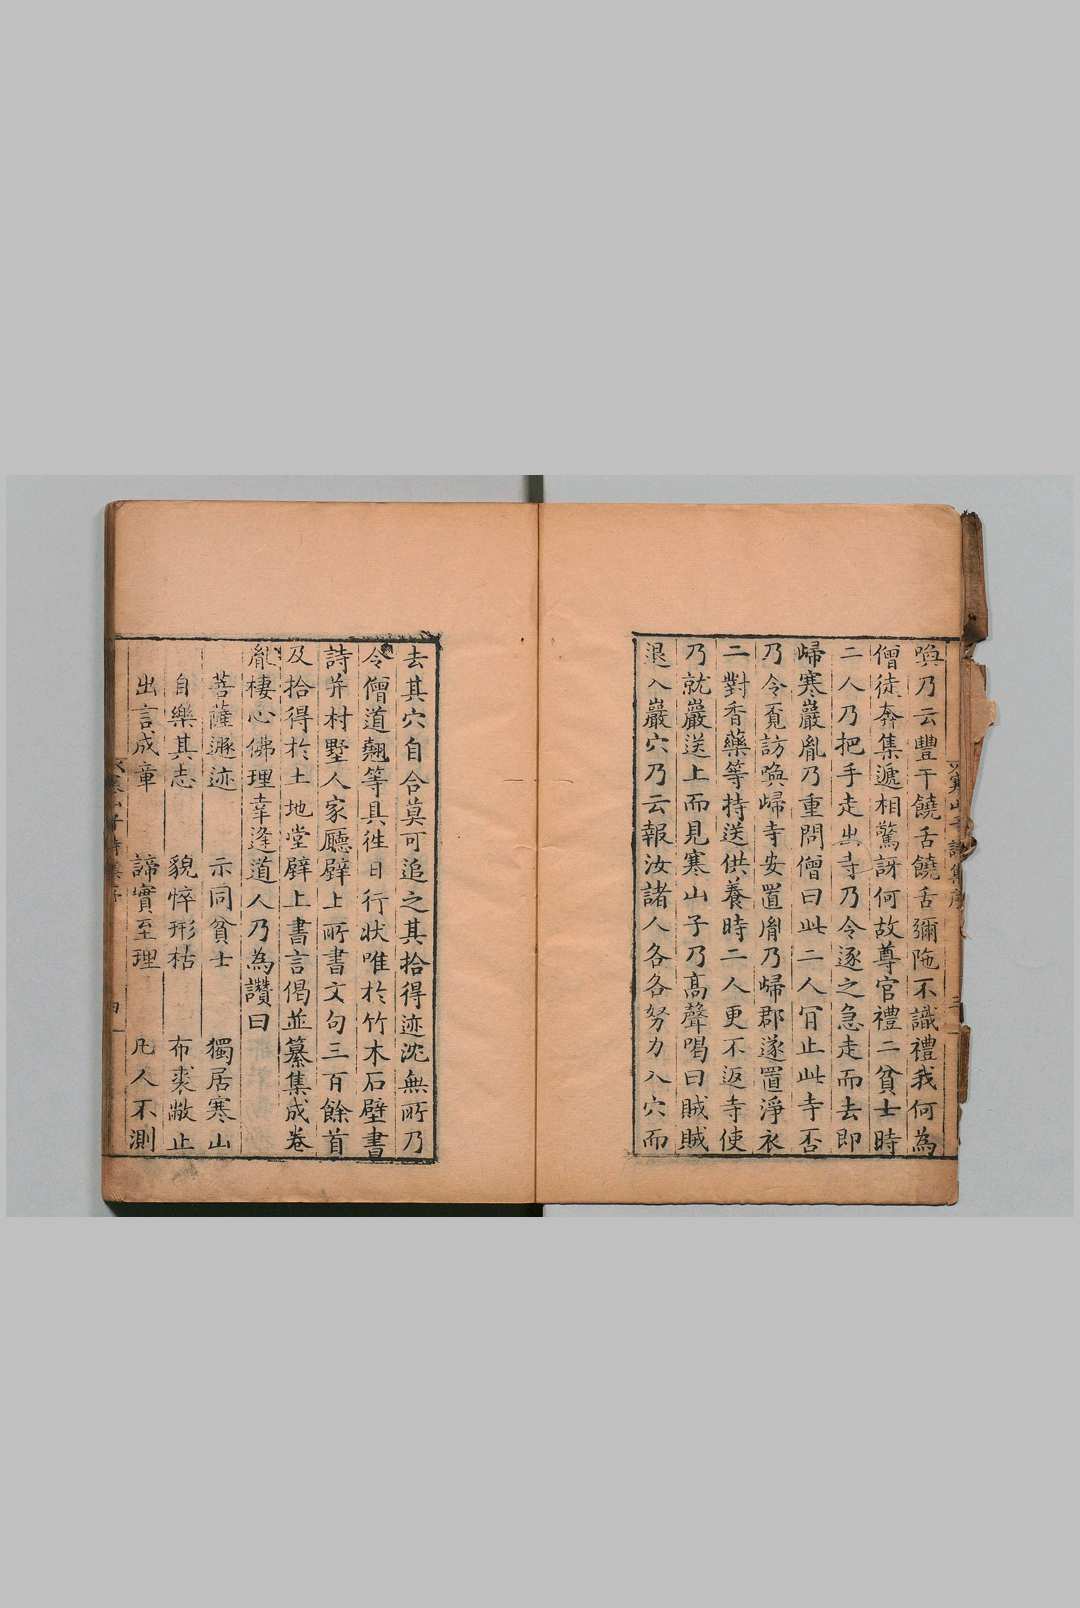 喚乃云豐干饒舌饒舌彌陁不識禮我何為
僧徒奔集遞相驚訝何故尊官禮二貧士時
二人乃把手走出寺乃令逐之急走而去即
歸寒巖胤乃重問僧曰此二人肎止此寺否
乃令覔訪喚歸寺安置胤乃歸郡遂置淨衣
二對香藥等持送供養時二人更不返寺使
乃就巖送上而見寒山子乃高聲喝曰賊賊
退入巖穴乃云報汝諸人各各努力入穴而
去其穴自合莫可追之其拾得迹沈無所乃
令僧道翹等具徃日行狀唯於竹木石壁書
詩并村墅人家廳壁上所書文句三百餘首
及拾得於土地堂壁上書言偈並纂集成卷
胤棲心佛理幸逢道人乃為讚曰
菩薩遯迹 示同貧士 獨居寒山
自樂其志 貌悴形枯 布裘敝止
出言成章 諦實至理 凡人不測